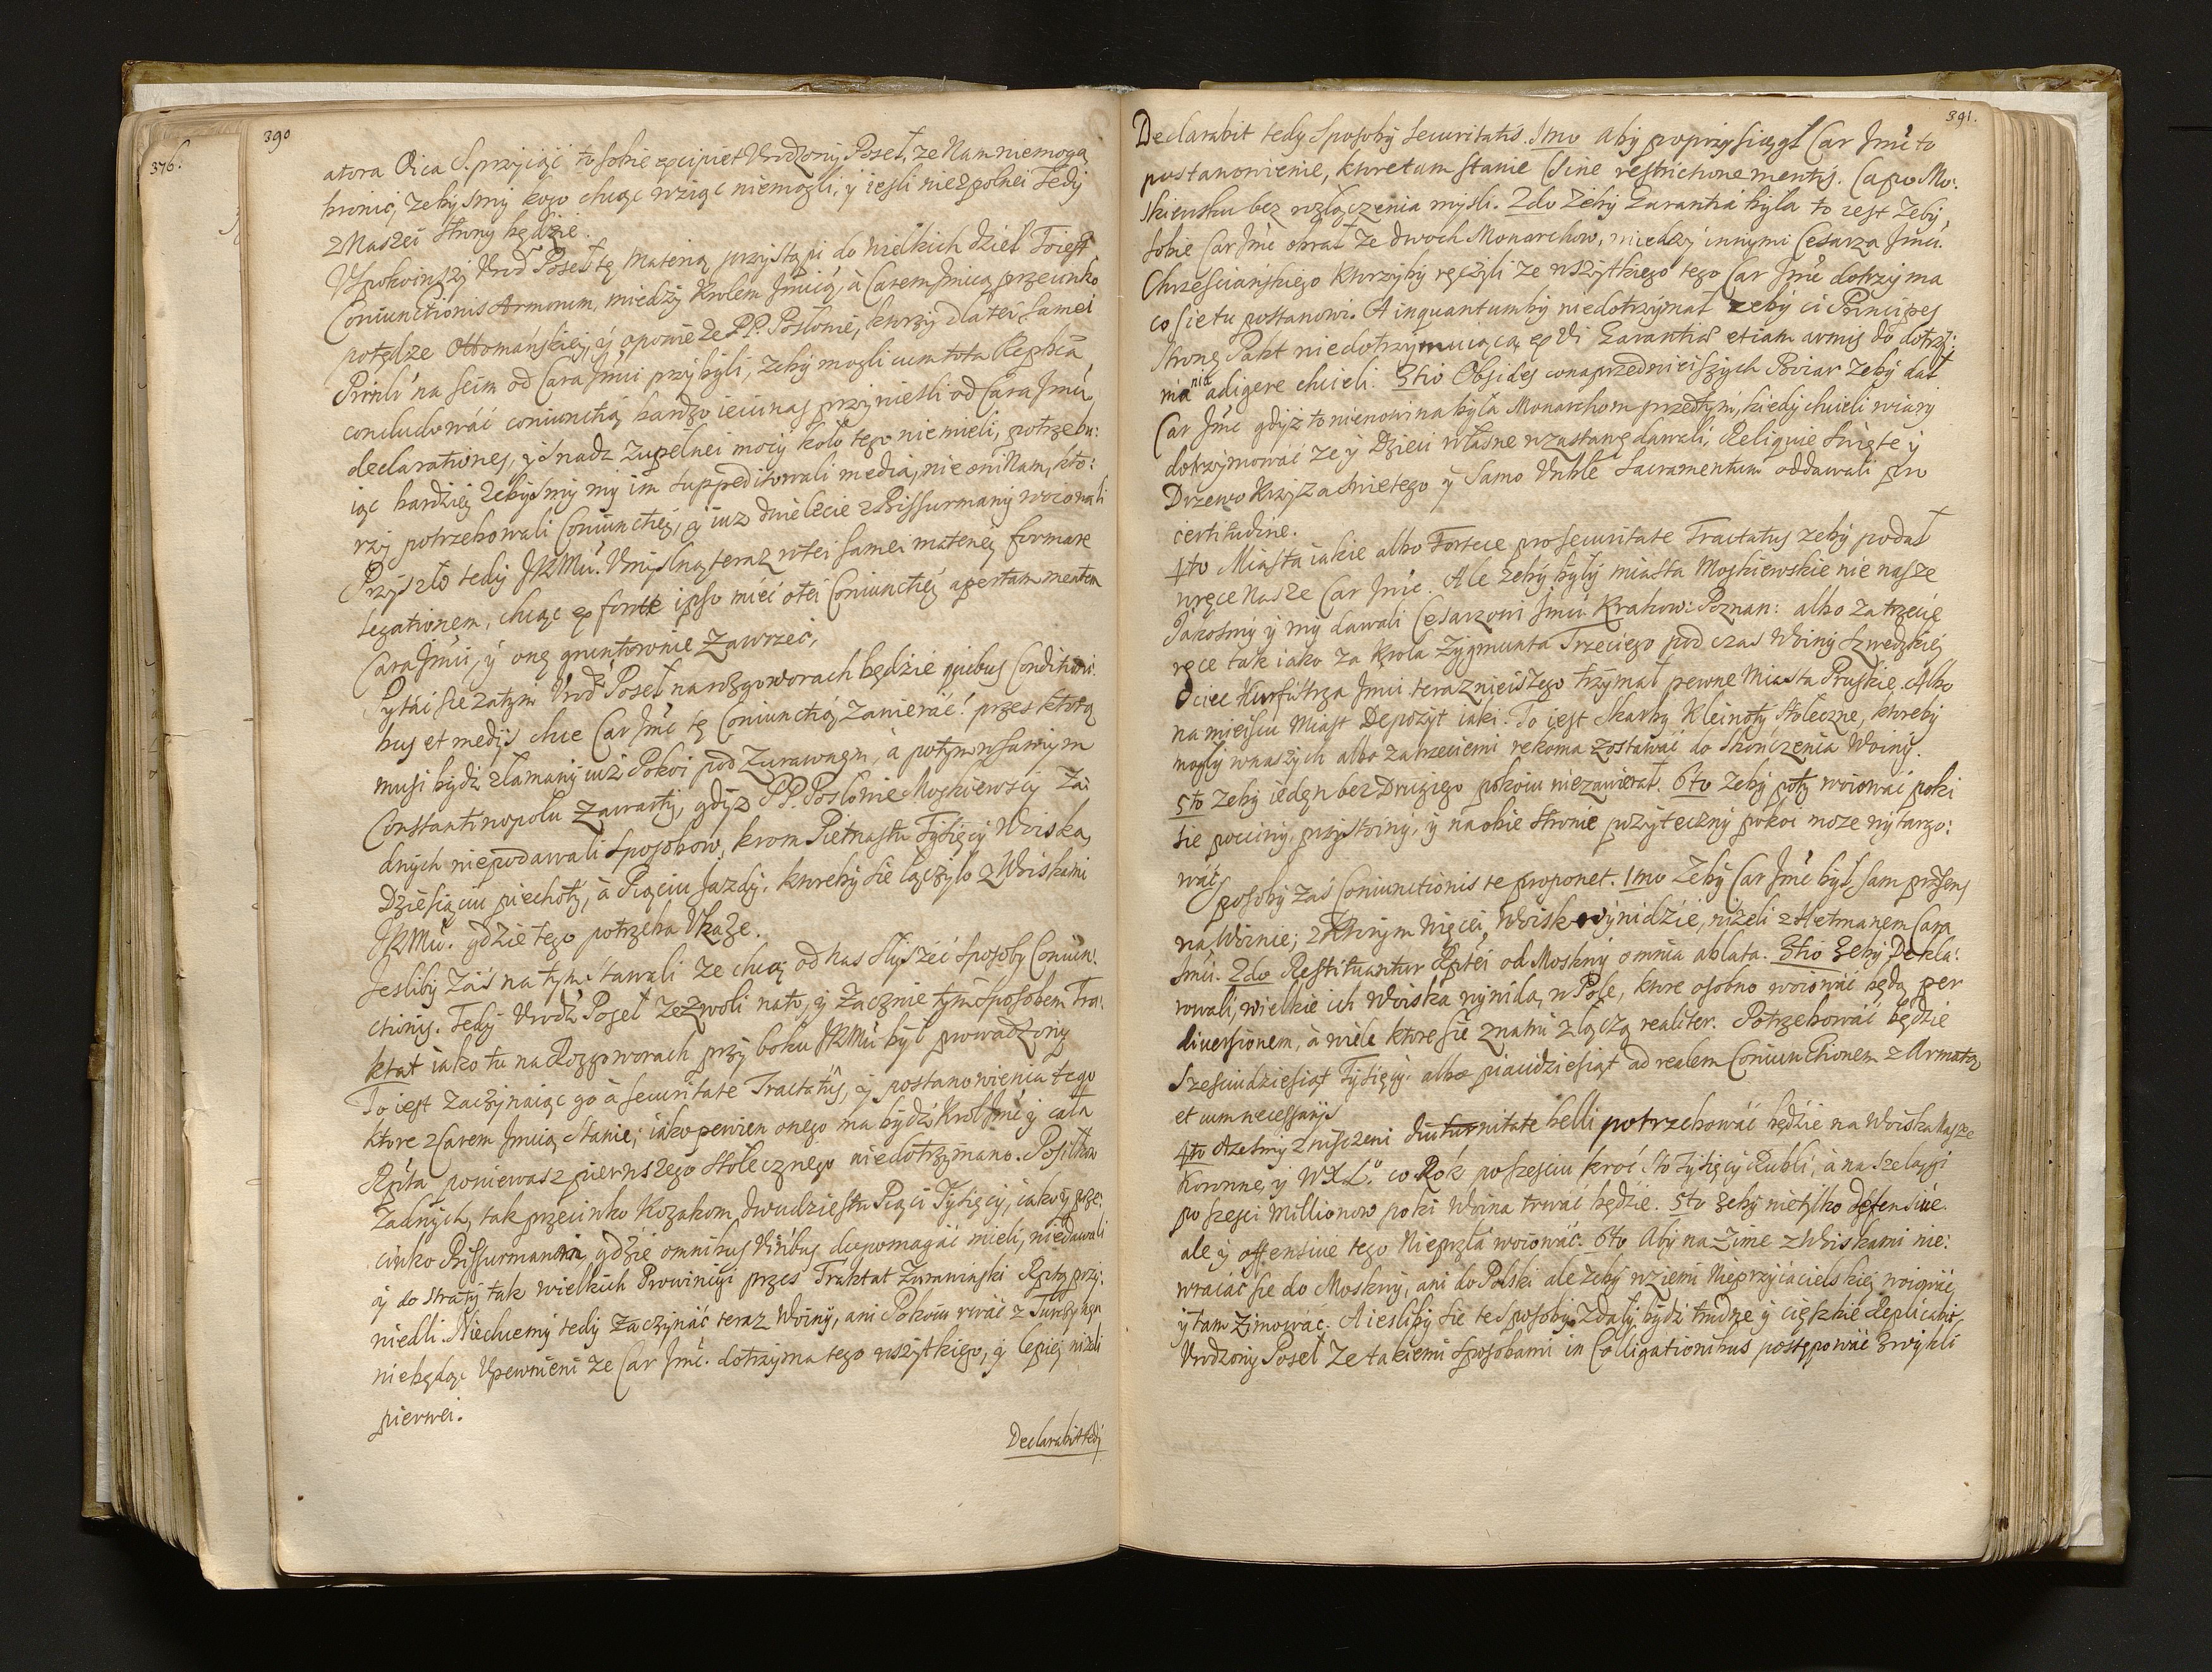 376.
390
atora Oica S. przyiąć to sobie excipiet Vrodzony Poseł, że Nam niemogą
bronić, żebysmy kogo chcąc wziąć niemogli, y iesli nie zpolnei tedy
z Naszei strony będzie.
Vspokoiwszy Vrod. Poseł tę materią przystąpi do wielkich dzieł To iest
Coniunctionis Armorum, między Krolem Jmcią, à Carem Jmcią przeciwko
potędze Ottomańskiey, y opowie że PP. Posłowie, ktorzy dla tei samei
na seim od Cara Jmci przybyli, żeby mogli cum tota Repbca
concludować coniunctią bardzo ieiunas przynieśli od Cara Jmci
declarationes, y snadz zupełnei mocy koło tego nie mieli, potrzebu:
iąc bardziey żebysmy my im suppeditowali media, nie oni Nam, kto:
rzy potrzebowali Coniunctiey, y iuz dwie lecie z Bissurmany woiowali
Przyszło tedy JKMci Vmyslną teraz w tei samei materiey formare
legationem, chcąc ex fonte ipso mieć o tei Coniunctiey apertam mentem
Cara Jmci, y onę gruntownie zawrzeć,
Pytai sie zatym Vrod. Poseł na rozgoworach będzie quibus Conditioni:
bus et medijs chce Car Jmć tę Coniunctią zawierać? przes ktorą
musi bydz złamany iuż Pokoi pod Zurawnem, à potym w samym
Constantinopolu zawarty, gdyz PP. Posłowie Moskiewscy ża:
dnych niepodawali sposobow, krom Pietnastu Tysięcy Woiska,
Dziesięciu piechoty, à Pięciu Jazdy, ktoreby sie łączyło z Woiskami
JKMci. gdzie tego potrzeba Vkaże.
Jesliby zaś na tym stawali że chcą od nas słyszeć sposoby Coniun:
ctionis. Tedy Vrodz. Poseł zezwoli na to, y zacznie tym sposobem Tra:
ktat iako tu na Rozgoworach przy boku JKMci był prowadzony
To iest zaczynaiąc go à securitate Tractatus, y postanowienia tego
ktore z Carem Jmcią stanie; iako pewien onego ma bydź Krol Jmć y cała
Rpta poniewasz pierwszego stołecznego niedotrzymano. Posiłkow
Żadnych, tak przeciwko Kozakom, dwudziestu Pięci Tysięcy, iako y prze:
ciwko Bissurmanom, gdzie omnibus Viribus dopomagać mieli, niedawali
y do straty tak wielkich Prowincyi przes Traktat Zurawinski Rptę przy:
niedli. Niechcemy tedy zaczynać teraz Woiny, ani Pokoiu rwać z Turczynem
niebędąc Vpewnieni że Car Jmć. dotrzyma tego wszytkiego, y lepiey niżeli
pierwei.
Declarabit tedy
391.
Declarabit tedy sposoby securitatis. 1mo Aby poprzysiągł Car Jmć to
postanowienie, ktore tam stanie (sine restrictione mentis. (a po Mo:
skiewsku bez wzłączenia mysli. 2do Żeby Garantia była to iest żeby
sobie Car Jmć obrał ze dwoch Monarchow, miedzy innymi Cesarza Jmci
Chrzescianskiego ktorzyby ręczyli że wszytkiego tego Car Jmć dotrzyma
co sie tu postanowi. A inquantumby niedotrzymał żeby ci Principes
stronę Pakt niedotrzymuiącą ex Vi Garantia etiam armis do dotrzy:
mania adigere chcieli. 3tio Obsides co naprzednieiszych Boiar żeby dał
Car Jmć gdyż to nienowina była Monarchom przedtym, kiedy chcieli wiary
dotrzymować że y Dzieci własne w zastawę dawali, Reliquie święte y
Drzewo Krzyża świetego y samo Vnble Sacramentum oddawali pro
certitudine.
4to Miasta iakie albo Fortece pro securitate Tractatus zeby podał
w ręce nasze Car Jmć. Ale żeby były miasta Moskiewskie nie nasze
Jakosmy y my dawali Cesarzowi Jmci Krakow: Poznan: albo za trzecię
ręce tak iako za Krola Zygmunta Trzeciego pod czas Woiny szwedzkiey
Ociec Kurfistrza Jmci terazniejszego trzymał pewne Miasta Pruskie. Albo
na mieiscu Miast Depozyt iaki. To iest Skarby Kleinoty stołeczne, ktoreby
mogły w naszych albo za trzeciemi rekoma zostawać do skończenia Woiny.
5to Zeby ieden bez Drugiego pokoiu niezawierał. 6to Zeby poty woiować poki
sie poćciwy, przystoiny, y na obie stronie pożyteczny pokoi może wytargo:
wać.
Sposoby zaś Coniunctionis te proponet. 1mo Żeby Car Jmć był sam prasens
na Woinie; z ktorym więcei Woisk wynidzie, niżeli z Hetmanem Cara
Jmci. 2do Restituantur Rptei od Moskwy omnia ablata. 3tio Zeby Dekla:
rowali, wielkie ich Woiska wynidą w Pole, ktore osobno woiować będą per
diversionem, à wiele ktore sie z nami złączą realiter. Potrzebować będzie
Szesciudziesiąt Tysięcy. albo piaciudziesiąt ad realem Coniunctionem z Armatą
et cum necessarijs
4to Azesmy zniszczeni diuturnitate belli potrzebować będzie na Woiska nasze
Koronne y WXL. co Rok po szesciu kroć sto Tysięcy Rubli, à na szelągi
po szesci Millionow poki Woina trwać będzie. 5to Zeby nietylko defensive
ale y offensive tego Nieprzla woiować. 6to Aby na Zime z Woiskami nie:
wracać sie do Moskwy, ani do Polski ale żeby w ziemi Nieprzyiacielskiej woiować
y tam zimować. A iesliby sie te sposoby zdały bydz trudne y cięszkie Replicabit
Vrodzony Poseł że takiemi sposobami in Colligationibus postępować zwykli